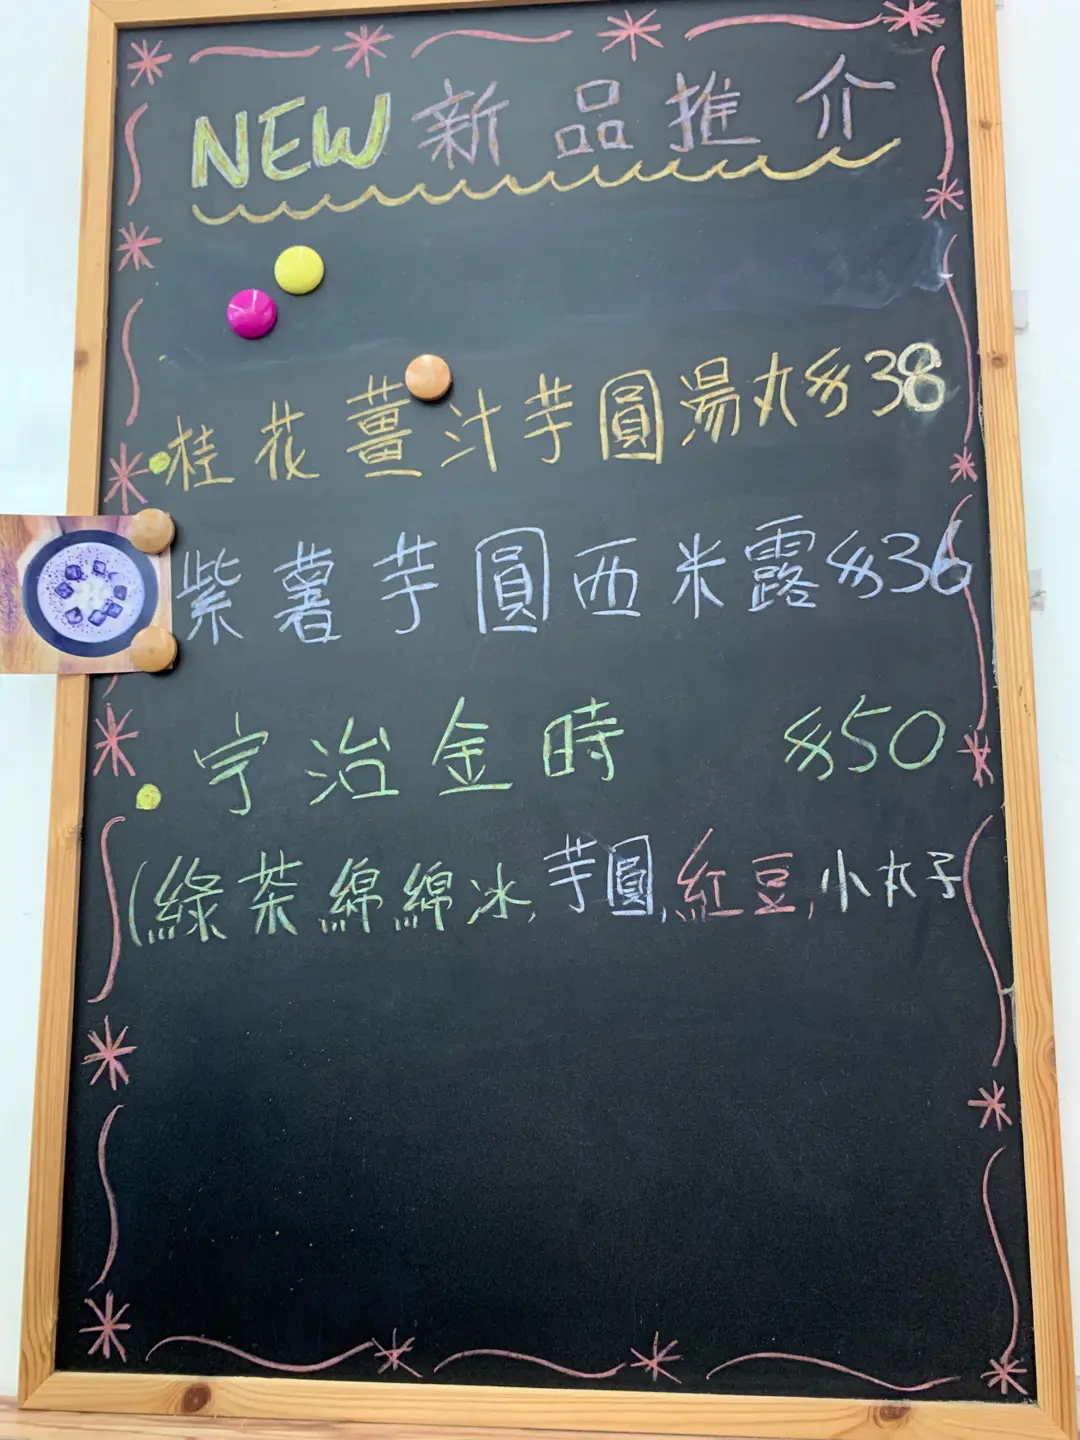 NEW新品推介
桂花薑汁芋圓湯丸$38
紫薯芋圓西米露$36
宇治金時 $50
(綠茶綿綿冰,芋圓,紅豆,小丸子